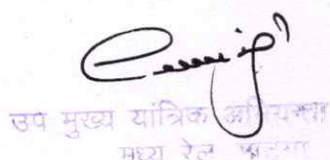 उप मुख्य यांत्रिक अभियन्ता
मध्य रेल